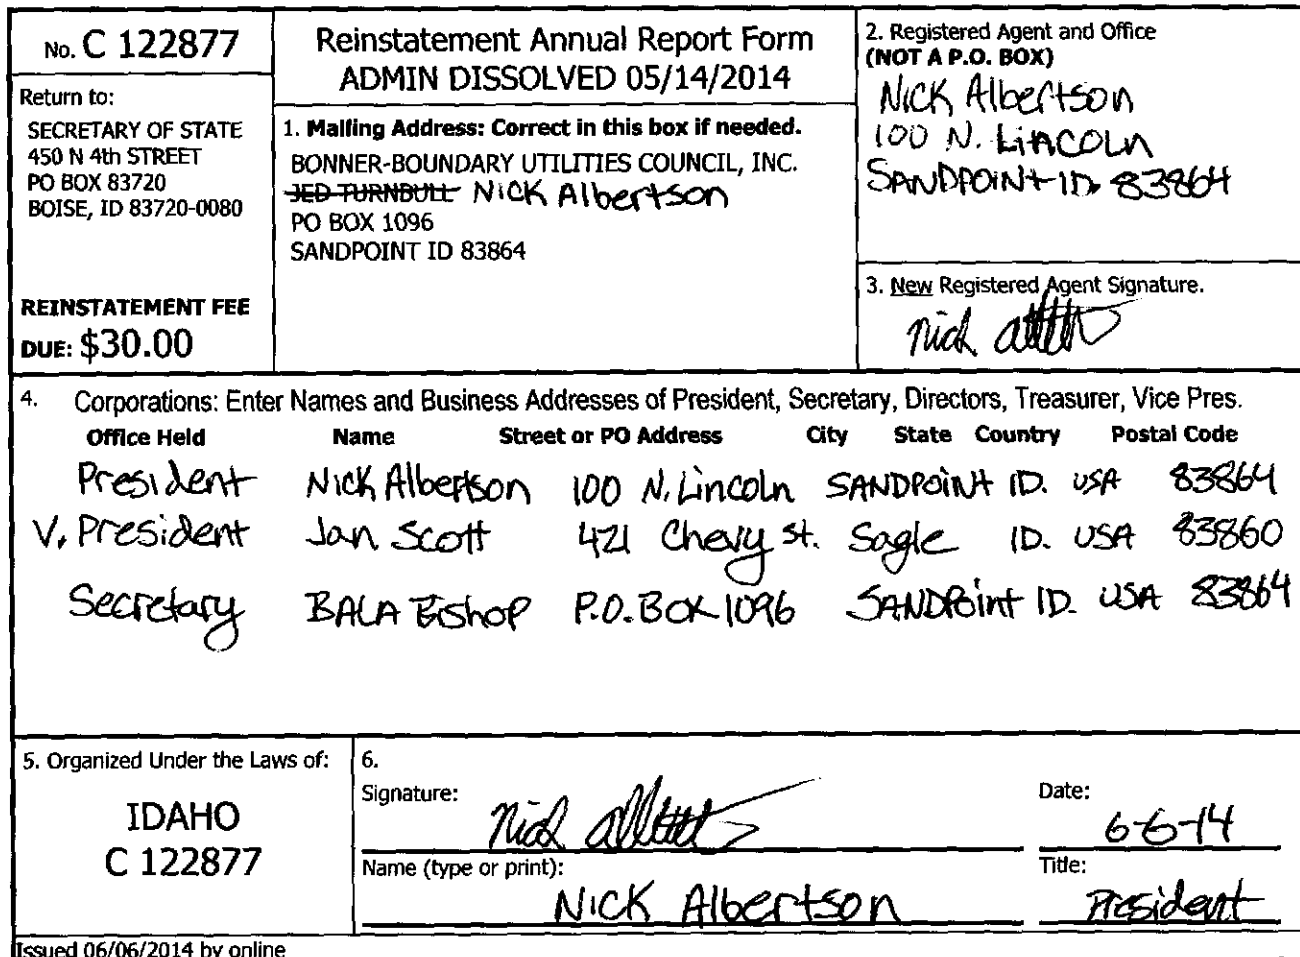 No. C 122877
Return to:
SECRETARY OF STATE
450 N 4th STREET
PO BOX 83720
BOISE, ID 83720-0080
REINSTATEMENT FEE
DUE: $30.00
Reinstatement Annual Report Form
ADMIN DISSOLVED 05/14/2014
1. Mailing Address: Correct in this box if needed.
BONNER-BOUNDARY UTILITIES COUNCIL, INC.
JED TURNBULL Nick Albertson
PO BOX 1096
SANDPOINT ID 83864
2. Registered Agent and Office
(NOT A P.O. BOX)
Nick Albertson
100 N. Lincoln
SANDPOINT ID. 83864
3. New Registered Agent Signature.
Nick
4. Corporations: Enter Names and Business Addresses of President, Secretary, Directors, Treasurer, Vice Pres.
Office Held Name Street or PO Address City State Country Postal Code
President Nick Albertson 100 N. Lincoln SANDPOINT ID. USA 83864
V. President Jan Scott 421 Chevy St. Sagle ID. USA 83860
Secretary BALA Bishop P.O. Box 1096 SANDPOINT ID. USA 83864
5. Organized Under the Laws of:
IDAHO
C 122877
6.
Signature: Nick
Date: 6-6-14
Name (type or print): Nick Albertson
Title: President
Issued 06/06/2014 by online